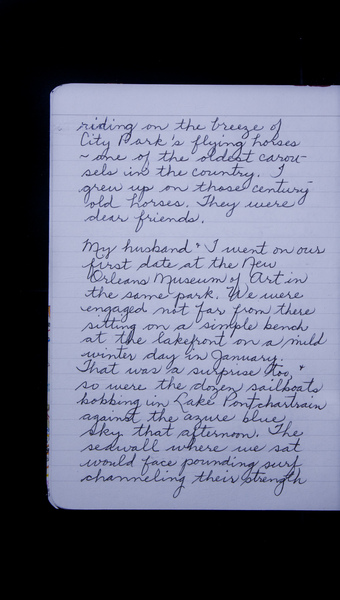 riding on the breeze of
City Park's flying horses
~ one of the oldest carou-
sels in the country. I
grew up on those century-
old horses. They were
dear friends.
My husband & I went on our
first date at the New
Orleans Museum of Art in
the same park. We were
engaged not far from there
sitting on a simple bench
at the lakefront on a mild
winter day in January.
That was a surprise too, &
so were the dozen sailboats
bobbing in Lake Pontchartrain
against the azure blue
sky that afternoon. The
seawall where we sat
would face pounding surf
channeling their strength